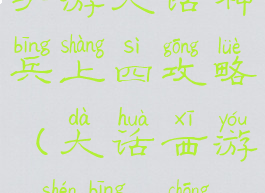 手游大话神
bīng shàng sì gōng lüè
兵上四攻略
dà huà xī yóu
(大话西游
shén bīng chōng